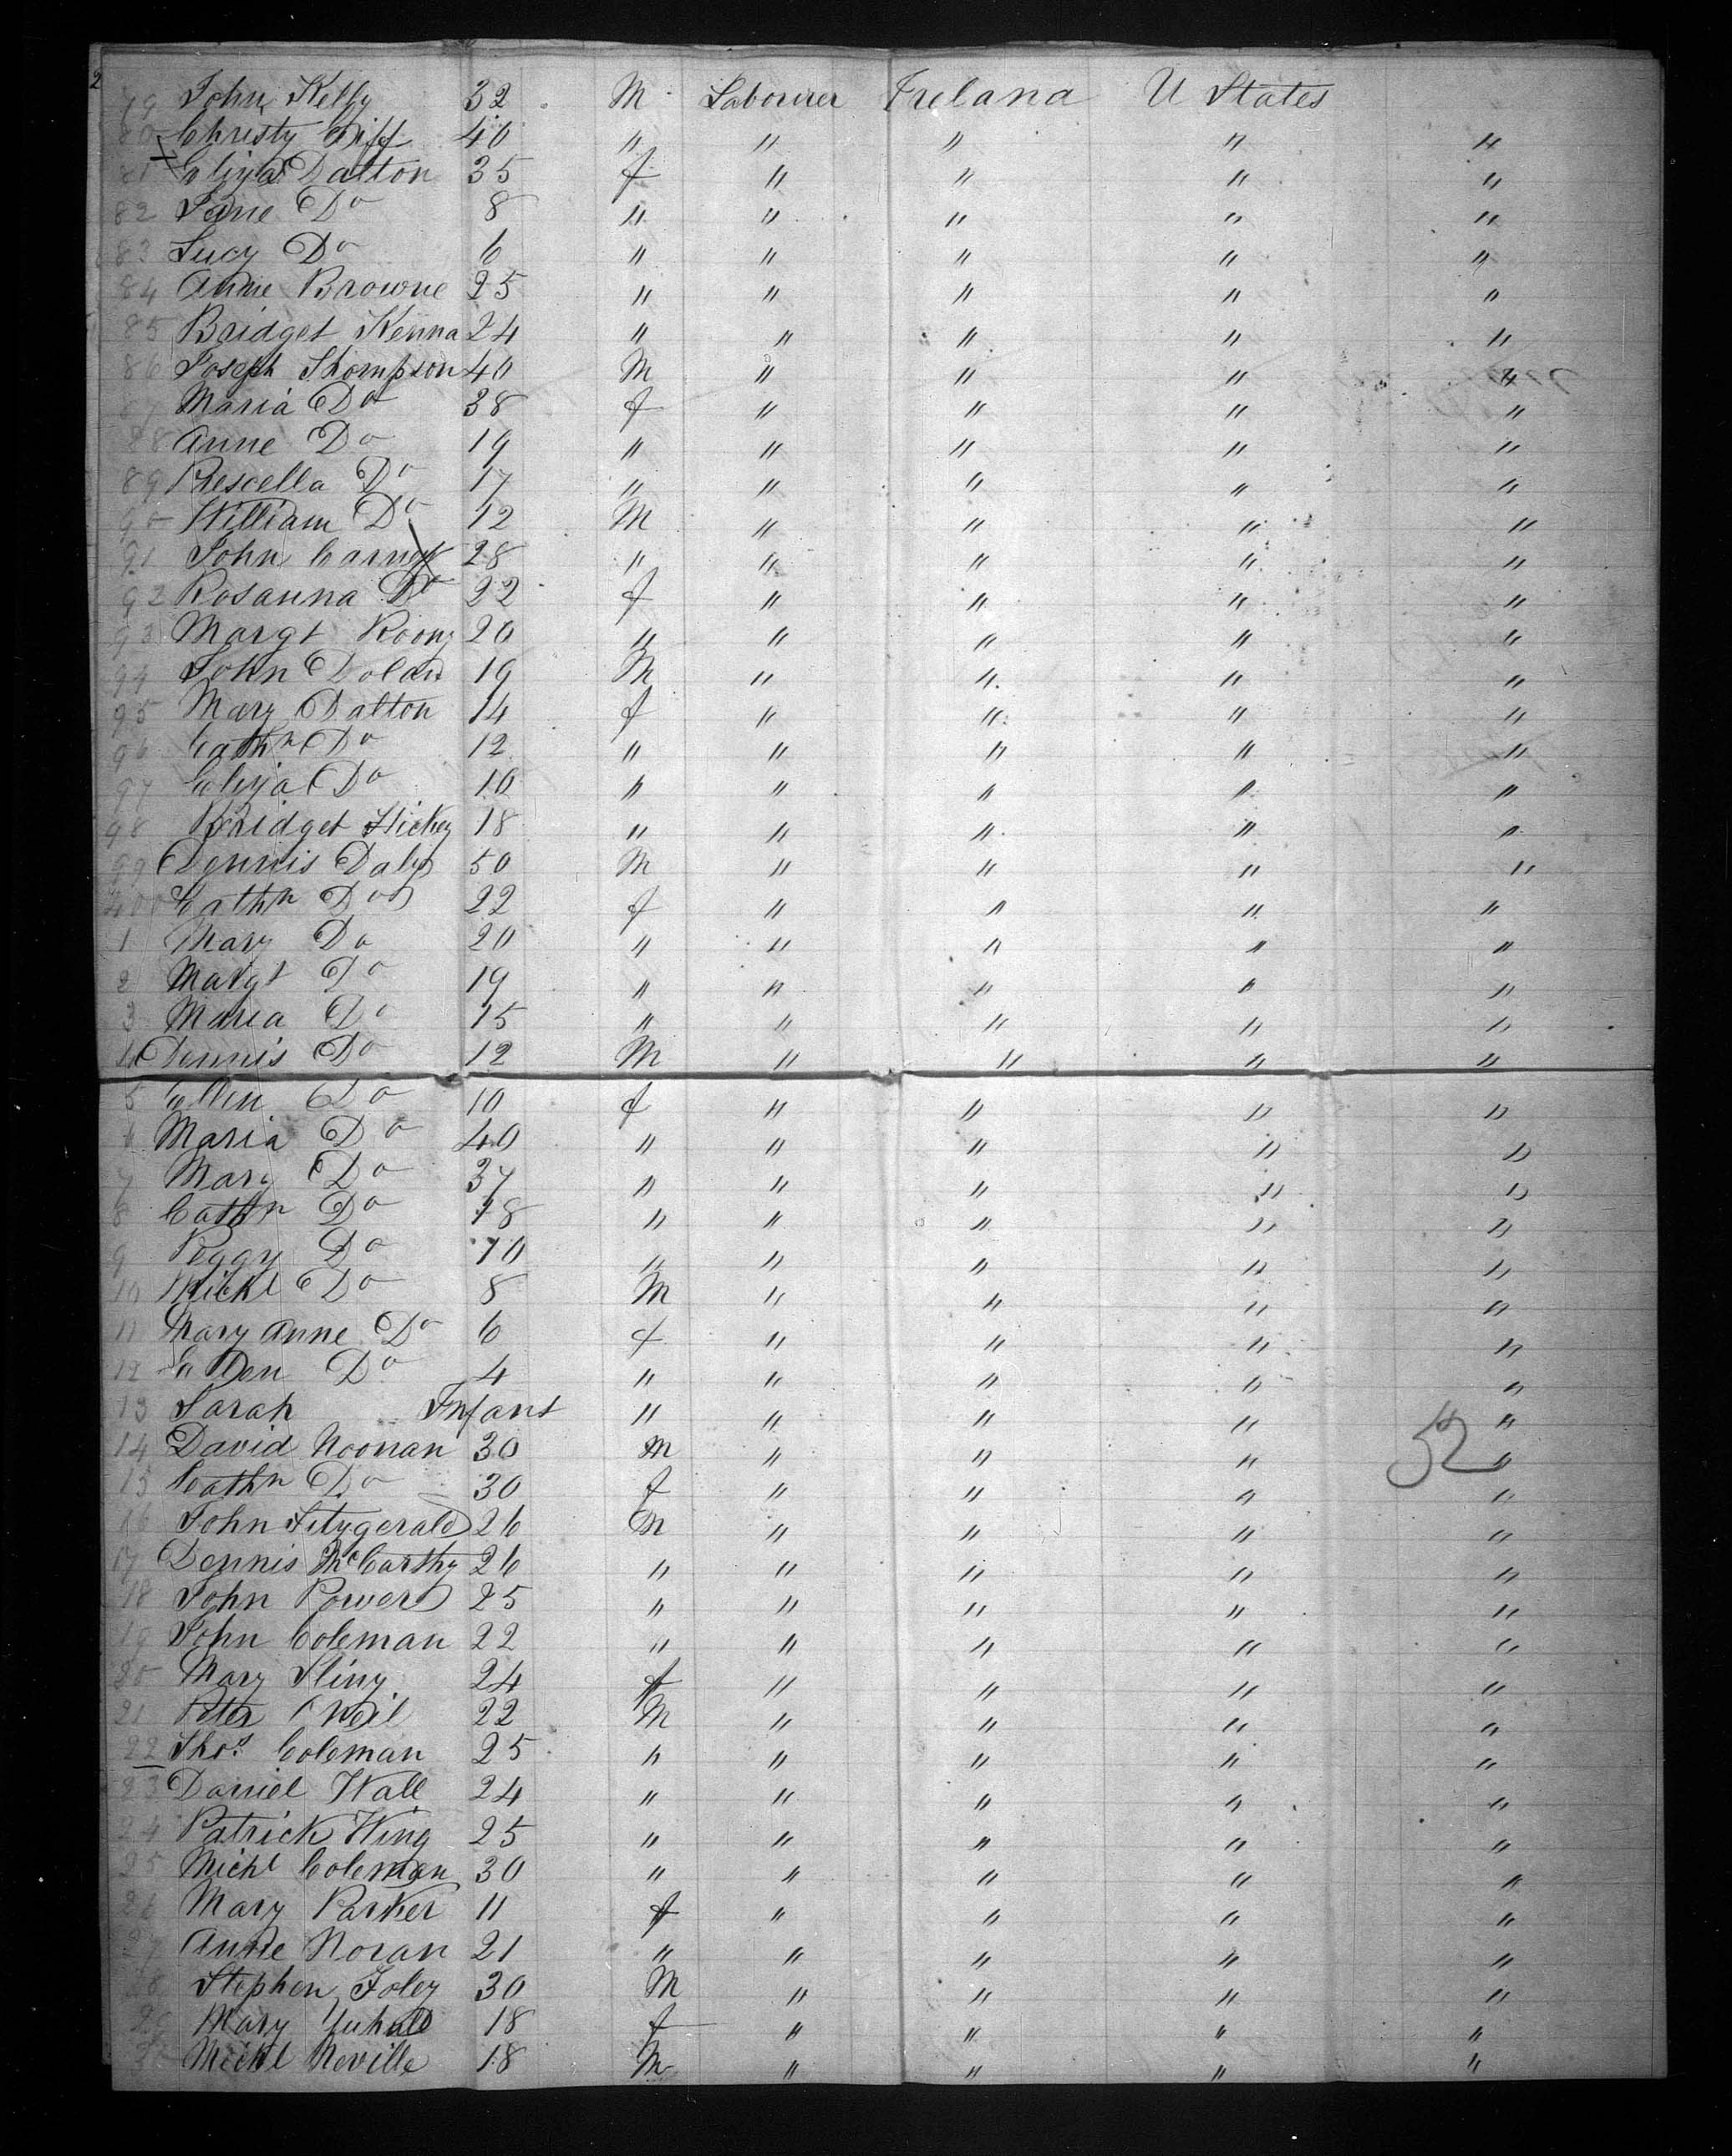 2
79 John Kelly 32 M Labourer Ireland U States
80 Christy Diff 40 " " " " "
81 Eliza Dalton 35 f " " " "
82 Jane Do 8 " " " " "
83 Lucy Do 6 " " " " "
84 Anne Browne 25 " " " " "
85 Bridget Kenna 24 " " " " "
86 Joseph Thompson 40 M " " " "
87 Maria Do 38 f " " " "
88 Anne Do 19 " " " " "
89 Rescella Do 17 " " " " "
90 William Do 12 M " " " "
91 John Carney 28 " " " " "
92 Rosanna Do 22 f " " " "
93 Margt Roony 20 " " " " "
94 John Dolan 19 M " " " "
95 Mary Dalton 14 f " " " "
96 Cathn Do 12 " " " " "
97 Eliza Do 10 " " " " "
98 Bridget Hickey 18 " " " " "
99 Dennis Daly 50 M " " " "
400 Cathn Do 22 f " " " "
1 Mary Do 20 " " " " "
2 Margt Do 19 " " " " "
3 Maria Do 15 " " " " "
4 Dennis Do 12 M " " " "
5 Ellen Do 10 f " " " "
6 Maria Do 40 " " " " "
7 Mary Do 37 " " " " "
8 Cathn Do 18 " " " " "
9 Peggy Do 10 " " " " "
10 Michl Do 8 M " " " "
11 Mary Anne Do 6 f " " " "
12 Ellen Do 4 " " " " "
13 Sarah Infant " " " " "
14 David Noonan 30 M " " " 52 "
15 Cathn Do 30 f " " " "
16 John Fitzgerald 26 M " " " "
17 Dennis McCarthy 26 " " " " "
18 John Power 25 " " " " "
19 John Coleman 22 " " " " "
20 Mary Sliny 24 f " " " "
21 Peter ONeil 22 M " " " "
22 Thos. Coleman 25 " " " " "
23 Daniel Wall 24 " " " " "
24 Patrick Wing 25 " " " " "
25 Michl Coleman 30 " " " " "
26 Mary Parker 11 f " " " "
27 Anne Noran 21 " " " " "
28 Stephen Foley 30 M " " " "
29 Mary 18 f " " " "
30 Michl Neville 18 M " " " "